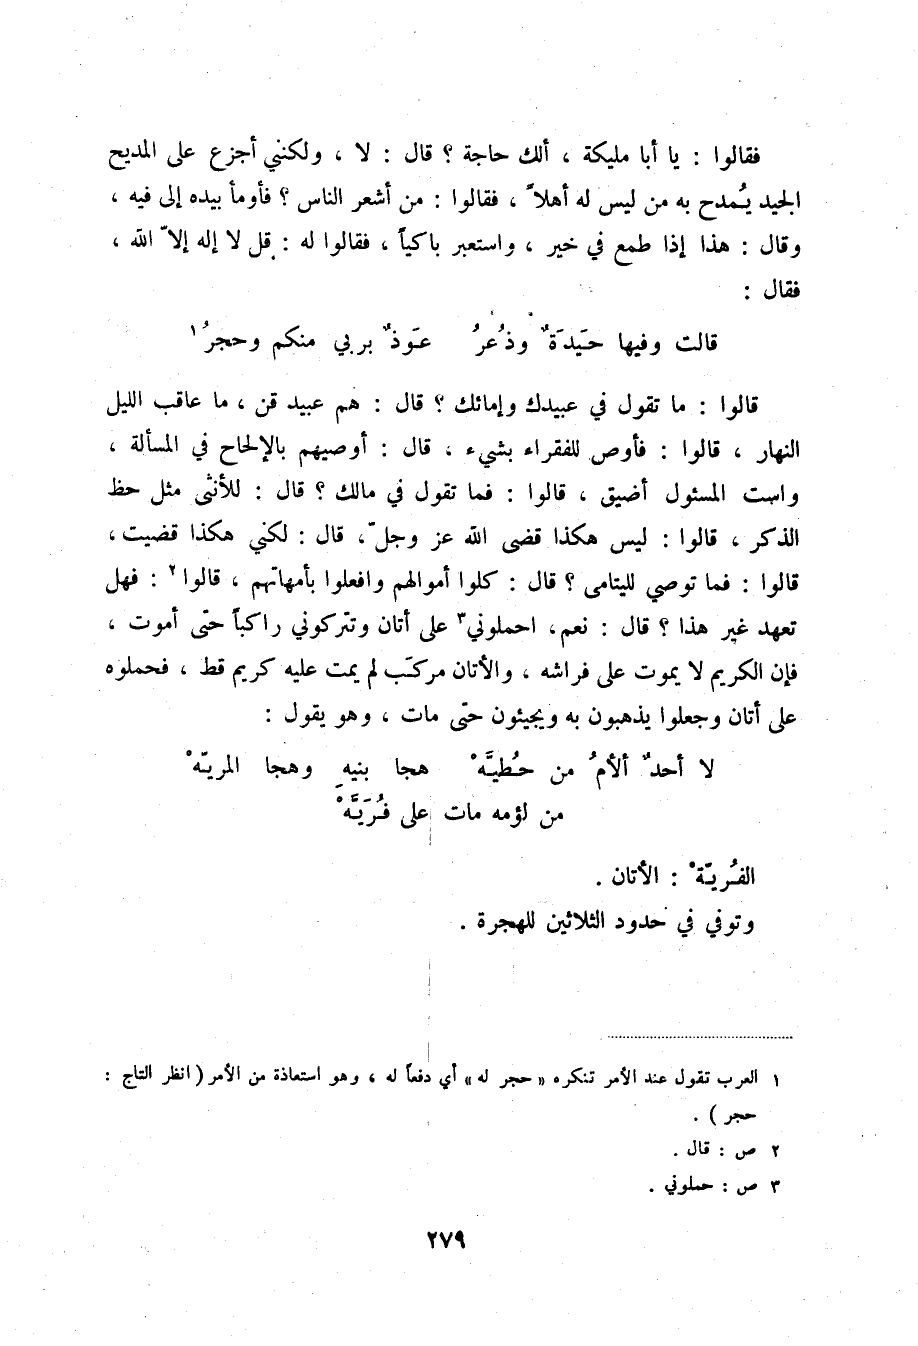 فقالوا : يا أبا مليكة ، ألك حاجة ؟ قال : لا ، ولكنني أجزع على المديح
الجيد يُمدح به من ليس له أهلاً ، فقالوا : من أشعر الناس ؟ فأومأ بيده إلى فيه ،
وقال : هذا إذا طمع في خير ، واستعبر باكياً ، فقالوا له : قل لا إله إلاّ الله ،
فقال :
قالت وفيها حَيدَةٌ وذُعرُ عَوذٌ بربي منكم وحجرُ١
قالوا : ما تقول في عبيدك وإمائك ؟ قال : هم عبيد قن ، ما عاقب الليل
النهار ، قالوا : فأوص للفقراء بشيء ، قال : أوصيهم بالإلحاح في المسألة ،
واست المسئول أضيق ، قالوا : فما تقول في مالك ؟ قال : للأنثى مثل حظ
الذكر ، قالوا : ليس هكذا قضى الله عز وجلّ ، قال : لكني هكذا قضيت ،
قالوا : فما توصي لليتامى ؟ قال : كلوا أموالهم وافعلوا بأمهاتهم ، قالوا ٢ : فهل
تعهد غير هذا ؟ قال : نعم، احملوني٣ على أتان وتتركوني راكباً حتّى أموت ،
فإن الكريم لا يموت على فراشه ، والأتان مركب لم يمت عليه كريم قط ، فحملوه
على أتان وجعلوا يذهبون به ويجيئون حتّى مات ، وهو يقول :
لا أحدٌ ألأمُ من حُطيَّهْ هجا بنيهِ وهجا المريّهْ
من لؤمه مات على فُرَيَّهْ
الفُريّهْ : الأتان .
وتوفي في حدود الثلاثين للهجرة .
١ العرب تقول عند الأمر تنكره « حجر له » أي دفعاً له ، وهو استعاذة من الأمر ( انظر التاج :
حجر ) .
٢ ص : قال .
٣ ص : حملوني .
٢٧٩